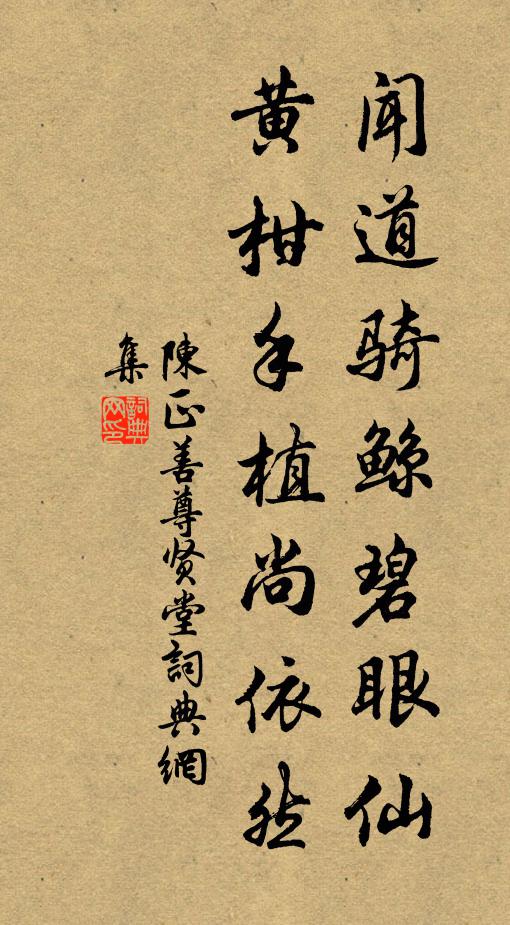 闻道骑鲸碧眼仙
黄柑手植尚依然
陳正善尊贤堂詞典網
集
詞典
网印